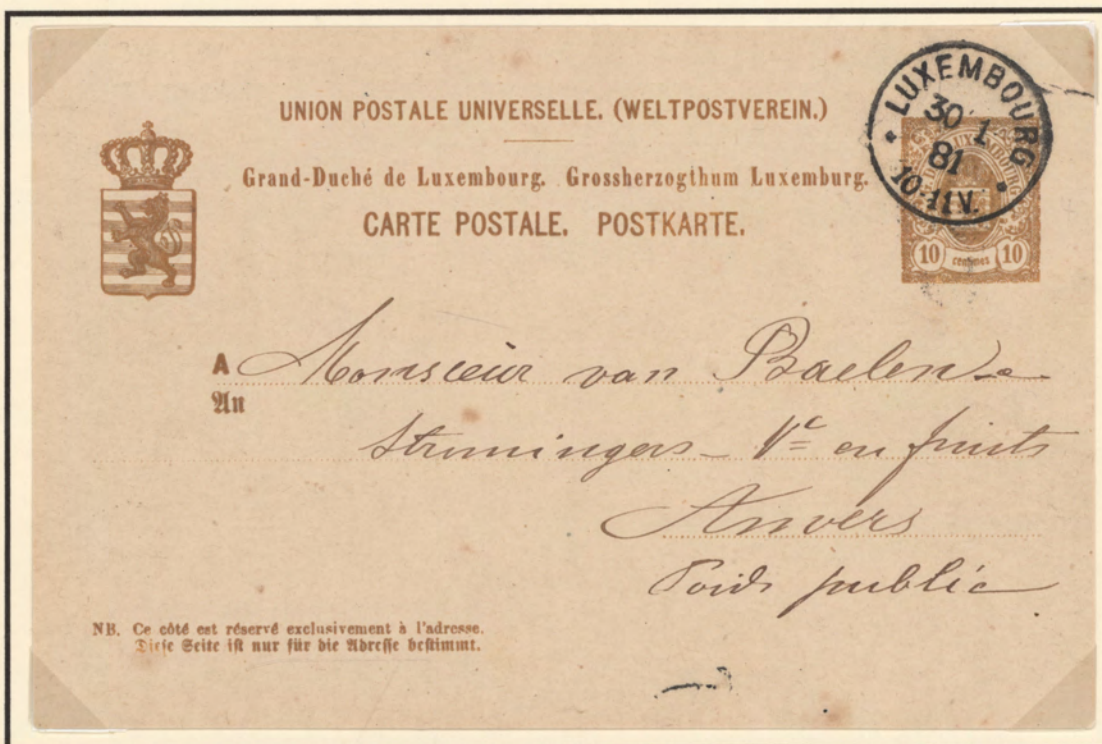 UNION POSTALE UNIVERSELLE. (WELTPOSTVEREIN.)
Grand-Duché de Luxembourg. Grossherzogthum Luxemburg.
CARTE POSTALE. POSTKARTE.
LUXEMBOURG
30 1
81
10-11V.
10 centimes 10
A Monsieur van Baelen
An
en fruits
Anvers
Poids public
NB. Ce côté est réservé exclusivement à l'adresse.
Diese Seite ist nur für die Adresse bestimmt.